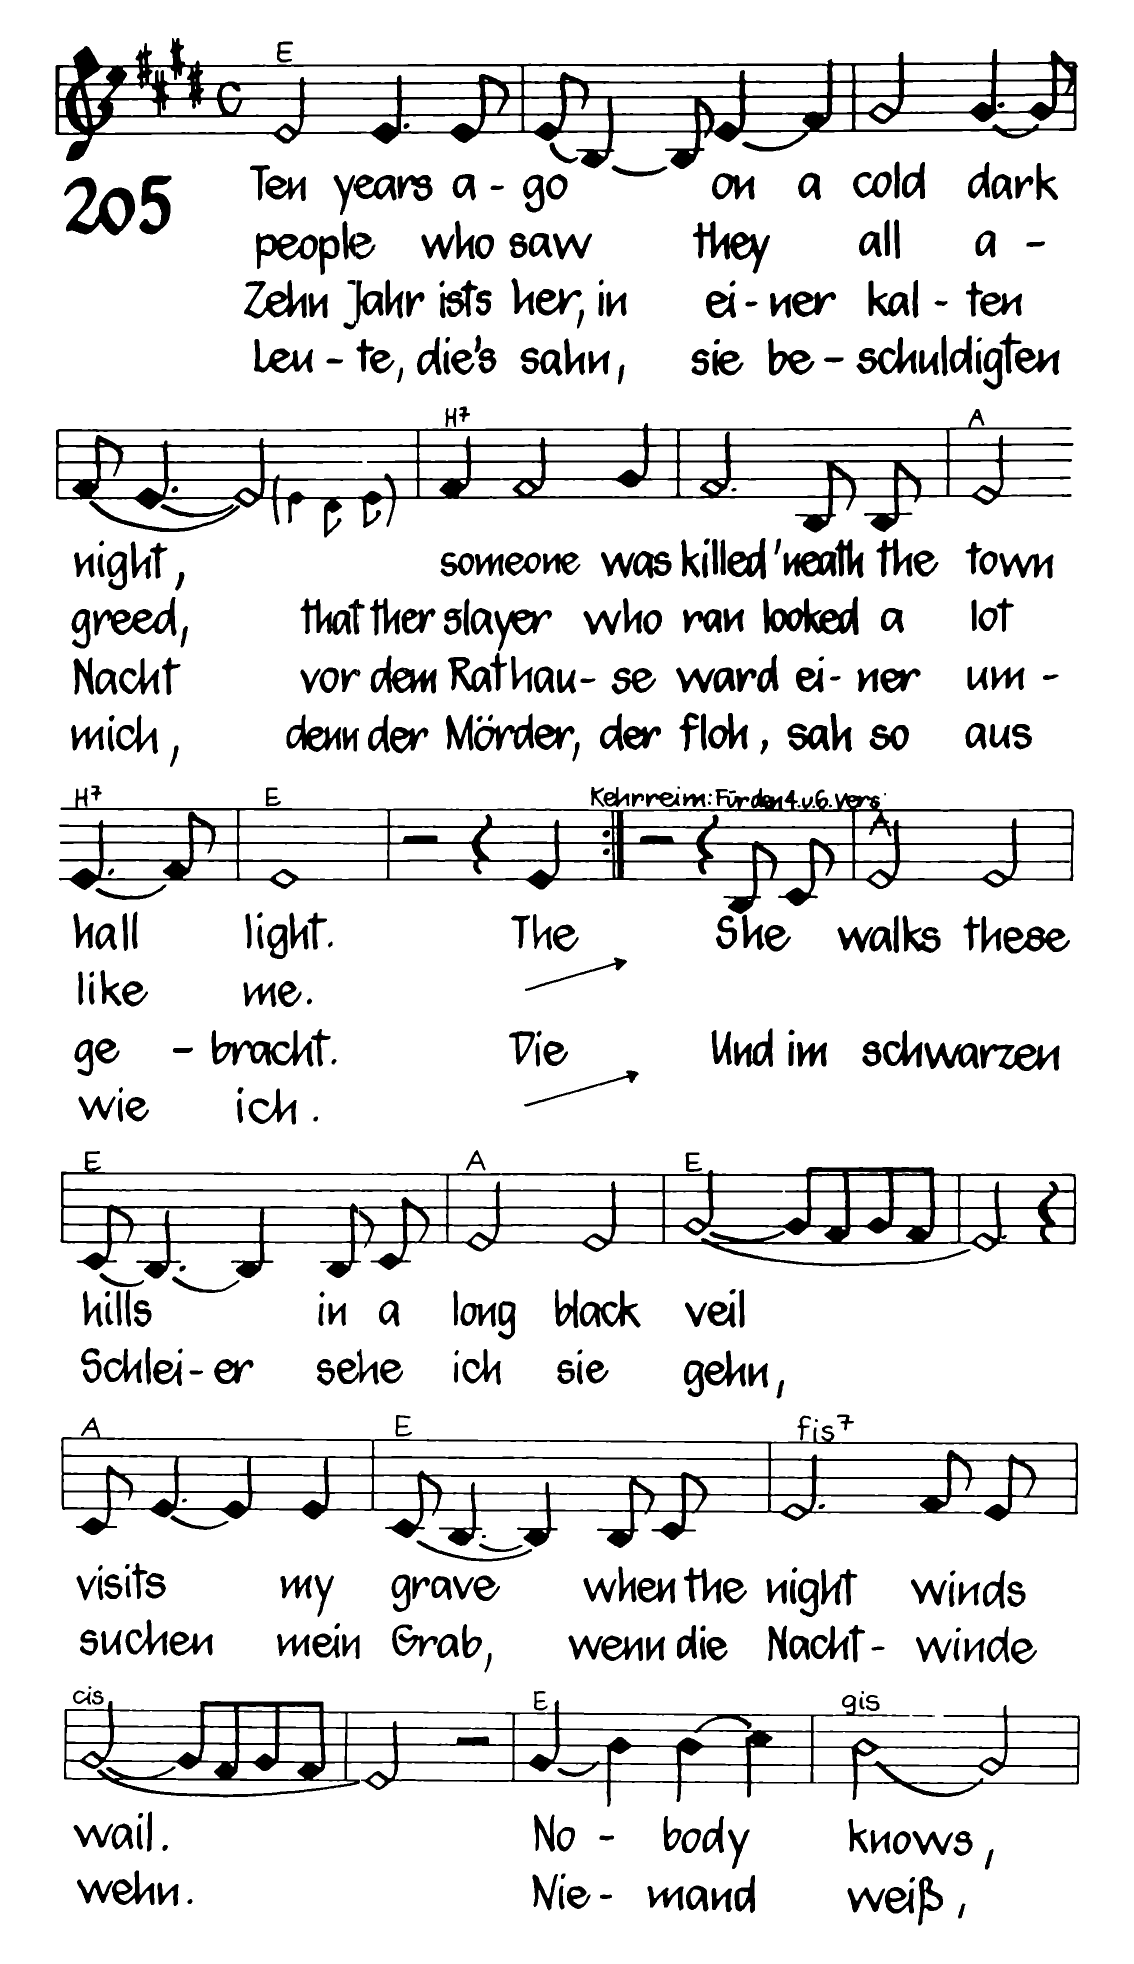 E
205
Ten years a - go on a cold dark
people who saw they all a -
Zehn Jahr ists her, in ei - ner kal - ten
Leu - te, die's sahn, sie be - schuldigten
H7 A
night, someone was killed 'neath the town
greed, that ther slayer who ran looked a lot
Nacht vor dem Rathau - se ward ei - ner um -
mich, denn der Mörder, der floh, sah so aus
H7 E Kehrreim: Für den 4. u. 6. vers A
hall light. The She walks these
like me.
ge - bracht. Die Und im schwarzen
wie ich.
E A E
hills in a long black veil
Schlei - er sehe ich sie gehn,
A E fis7
visits my grave when the night winds
suchen mein Grab, wenn die Nacht - winde
cis E gis
wail. No - body knows,
wehn. Nie - mand weiß,